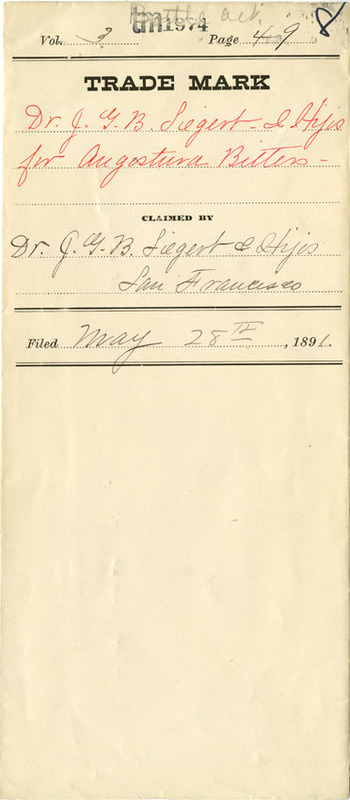 Bottle act.
tm1974
Vol. 3 Page 49
TRADE MARK
Dr. J. G. B. Siegert & Hijis
for Angostura Bitters -
CLAIMED BY
Dr. J. G. B. Siegert & Hijis
San Francisco
Filed May 28TH, 1891.